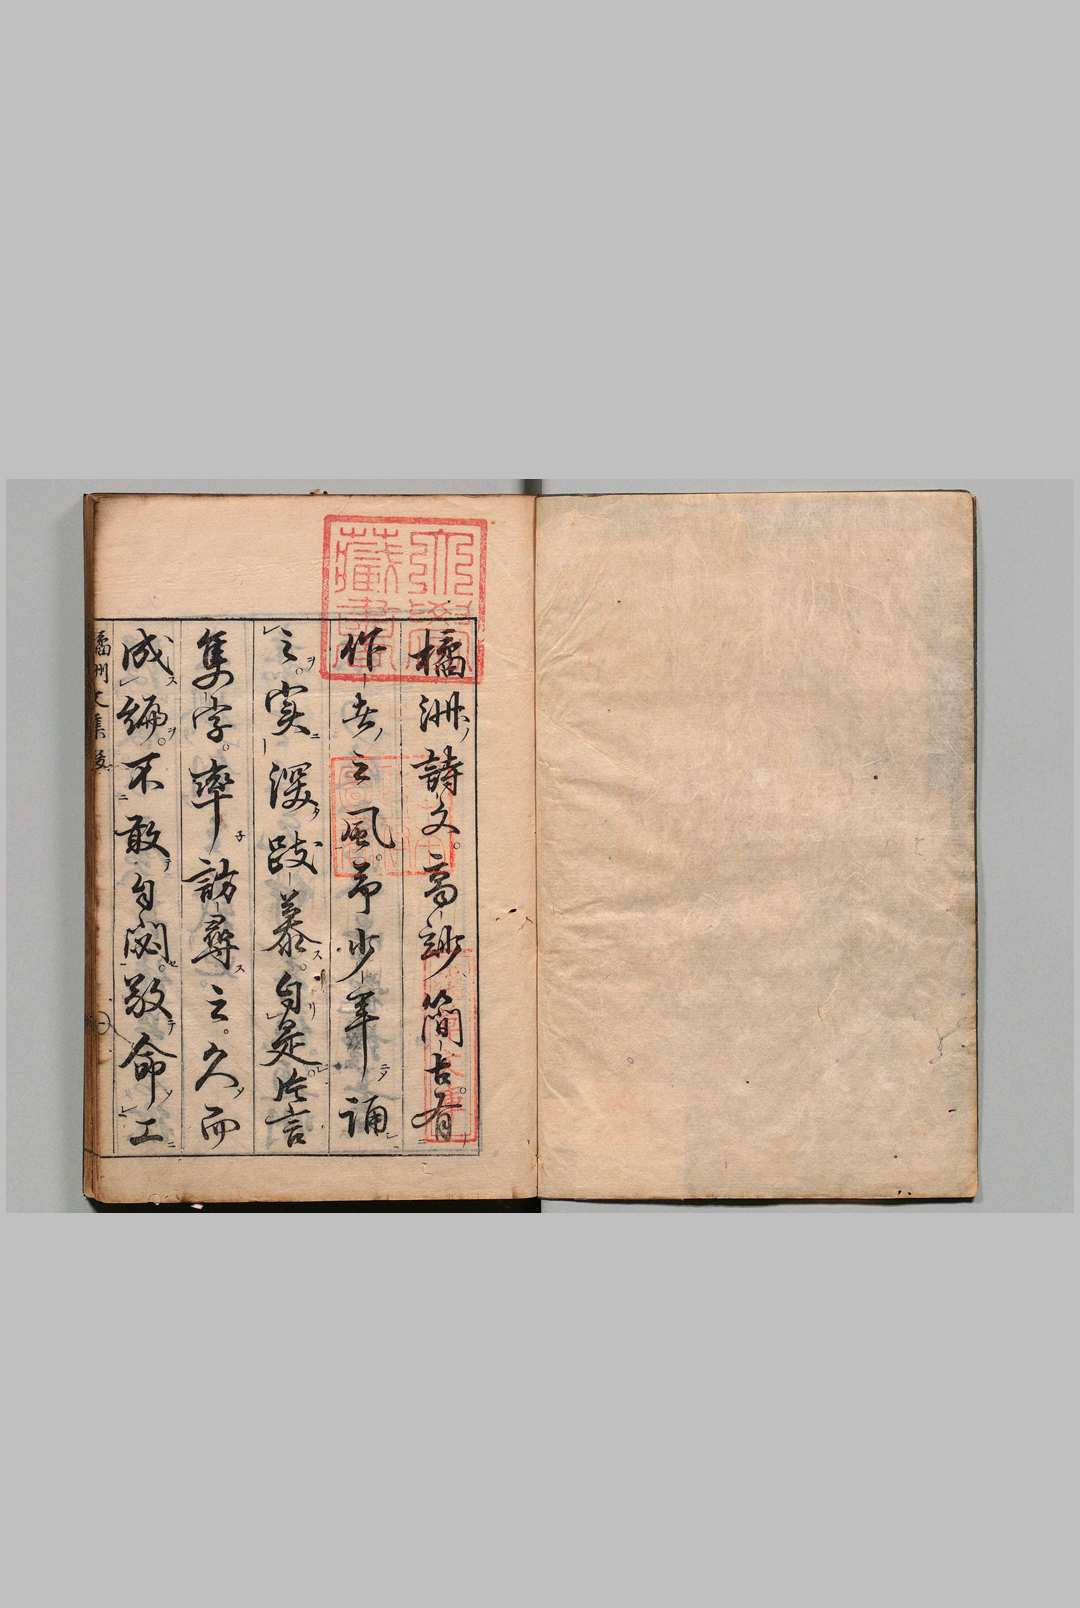 橘洲詩文。高竗簡古。有
作者之風。予少年誦
之。実深跂慕。自是片言
隻字。率訪尋之。久而
成編。不敢自閟。敬命工
橘州文集